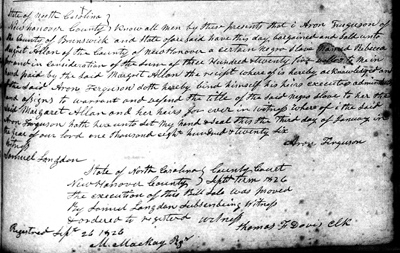 State of North Carolina }
New Hanover County } Know all men by these presents that I Aron Ferguson of
the County of Brunswick and State aforesaid have this day bargained and sold unto
Margret Allan of the County of New Hanover a certain negro slave named Rebecca
for and in consideration of the sum of three Hundred & twenty five dollars to me in
hand paid by the said Margret Allan the receipt where of is hereby acknowledged and
the said Aron Ferguson doth hereby bind himself his heirs executors and
assigns to warrant and defend the title of the said negro slave to her the
said Margaret Allan and her heirs for ever in witness where of I the said
Aron Ferguson hath here unto set my hand & seal this the Third day of January in
the year of our lord one thousand eight hundred & twenty six
Witness Aron Ferguson
Samuel Langdon
State of North Carolina } County Court
New Hanover County } Septr Term 1826
The execution of this Bill Sale was proved
By Samuel Langdon Subscribing Witness
& ordered to registerd Witness
Thomas F Davis Clk
Registered Sept 26 1826
M. MacKay Rgr